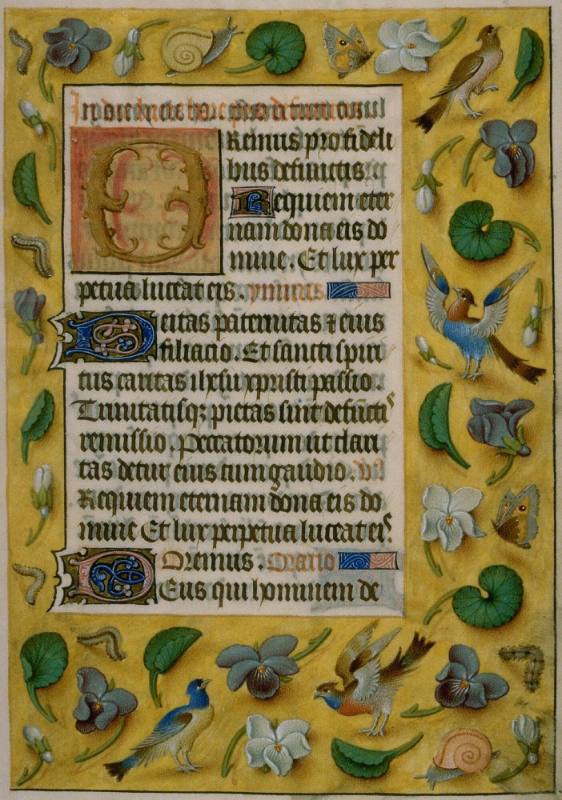 Remus pro fideli
bus defunctis.
Requiem eter
nam dona eis do
mine. Et lux per
petua luceat eis. ymnus
Deitas paternitas ⁊ eius
filiacio. Et sancti spiri
tus caritas ihxsu xpristi passio.
Trinitatisqꝫ pietas sint defuncti
remissio. Peccatorum ut clari
tas detur eius cum gaudio.
Requiem eternam dona eis do
mine Et lux perpetua luceat eis
Oremus. Oratio
Deus qui hominem de